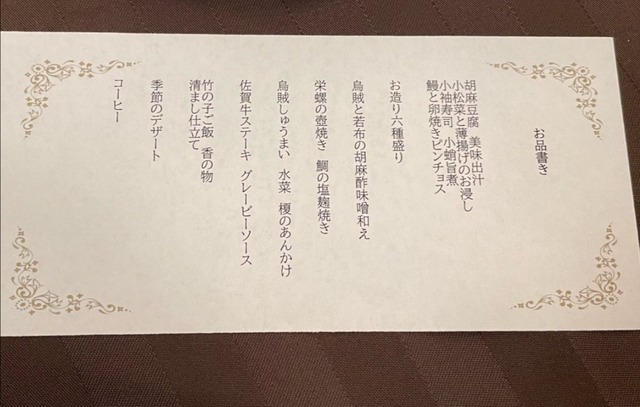 お品書き
胡麻豆腐 美味出汁
小松菜と薄揚げのお浸し
小袖寿司 小蛸旨煮
鰻と卵焼きピンチョス
お造り六種盛り
烏賊と若布の胡麻酢味噌和え
栄螺の壺焼き 鯛の塩麹焼き
烏賊しゅうまい 水菜 榎のあんかけ
佐賀牛ステーキ グレービーソース
竹の子ご飯 香の物
清まし仕立て
季節のデザート
コーヒー